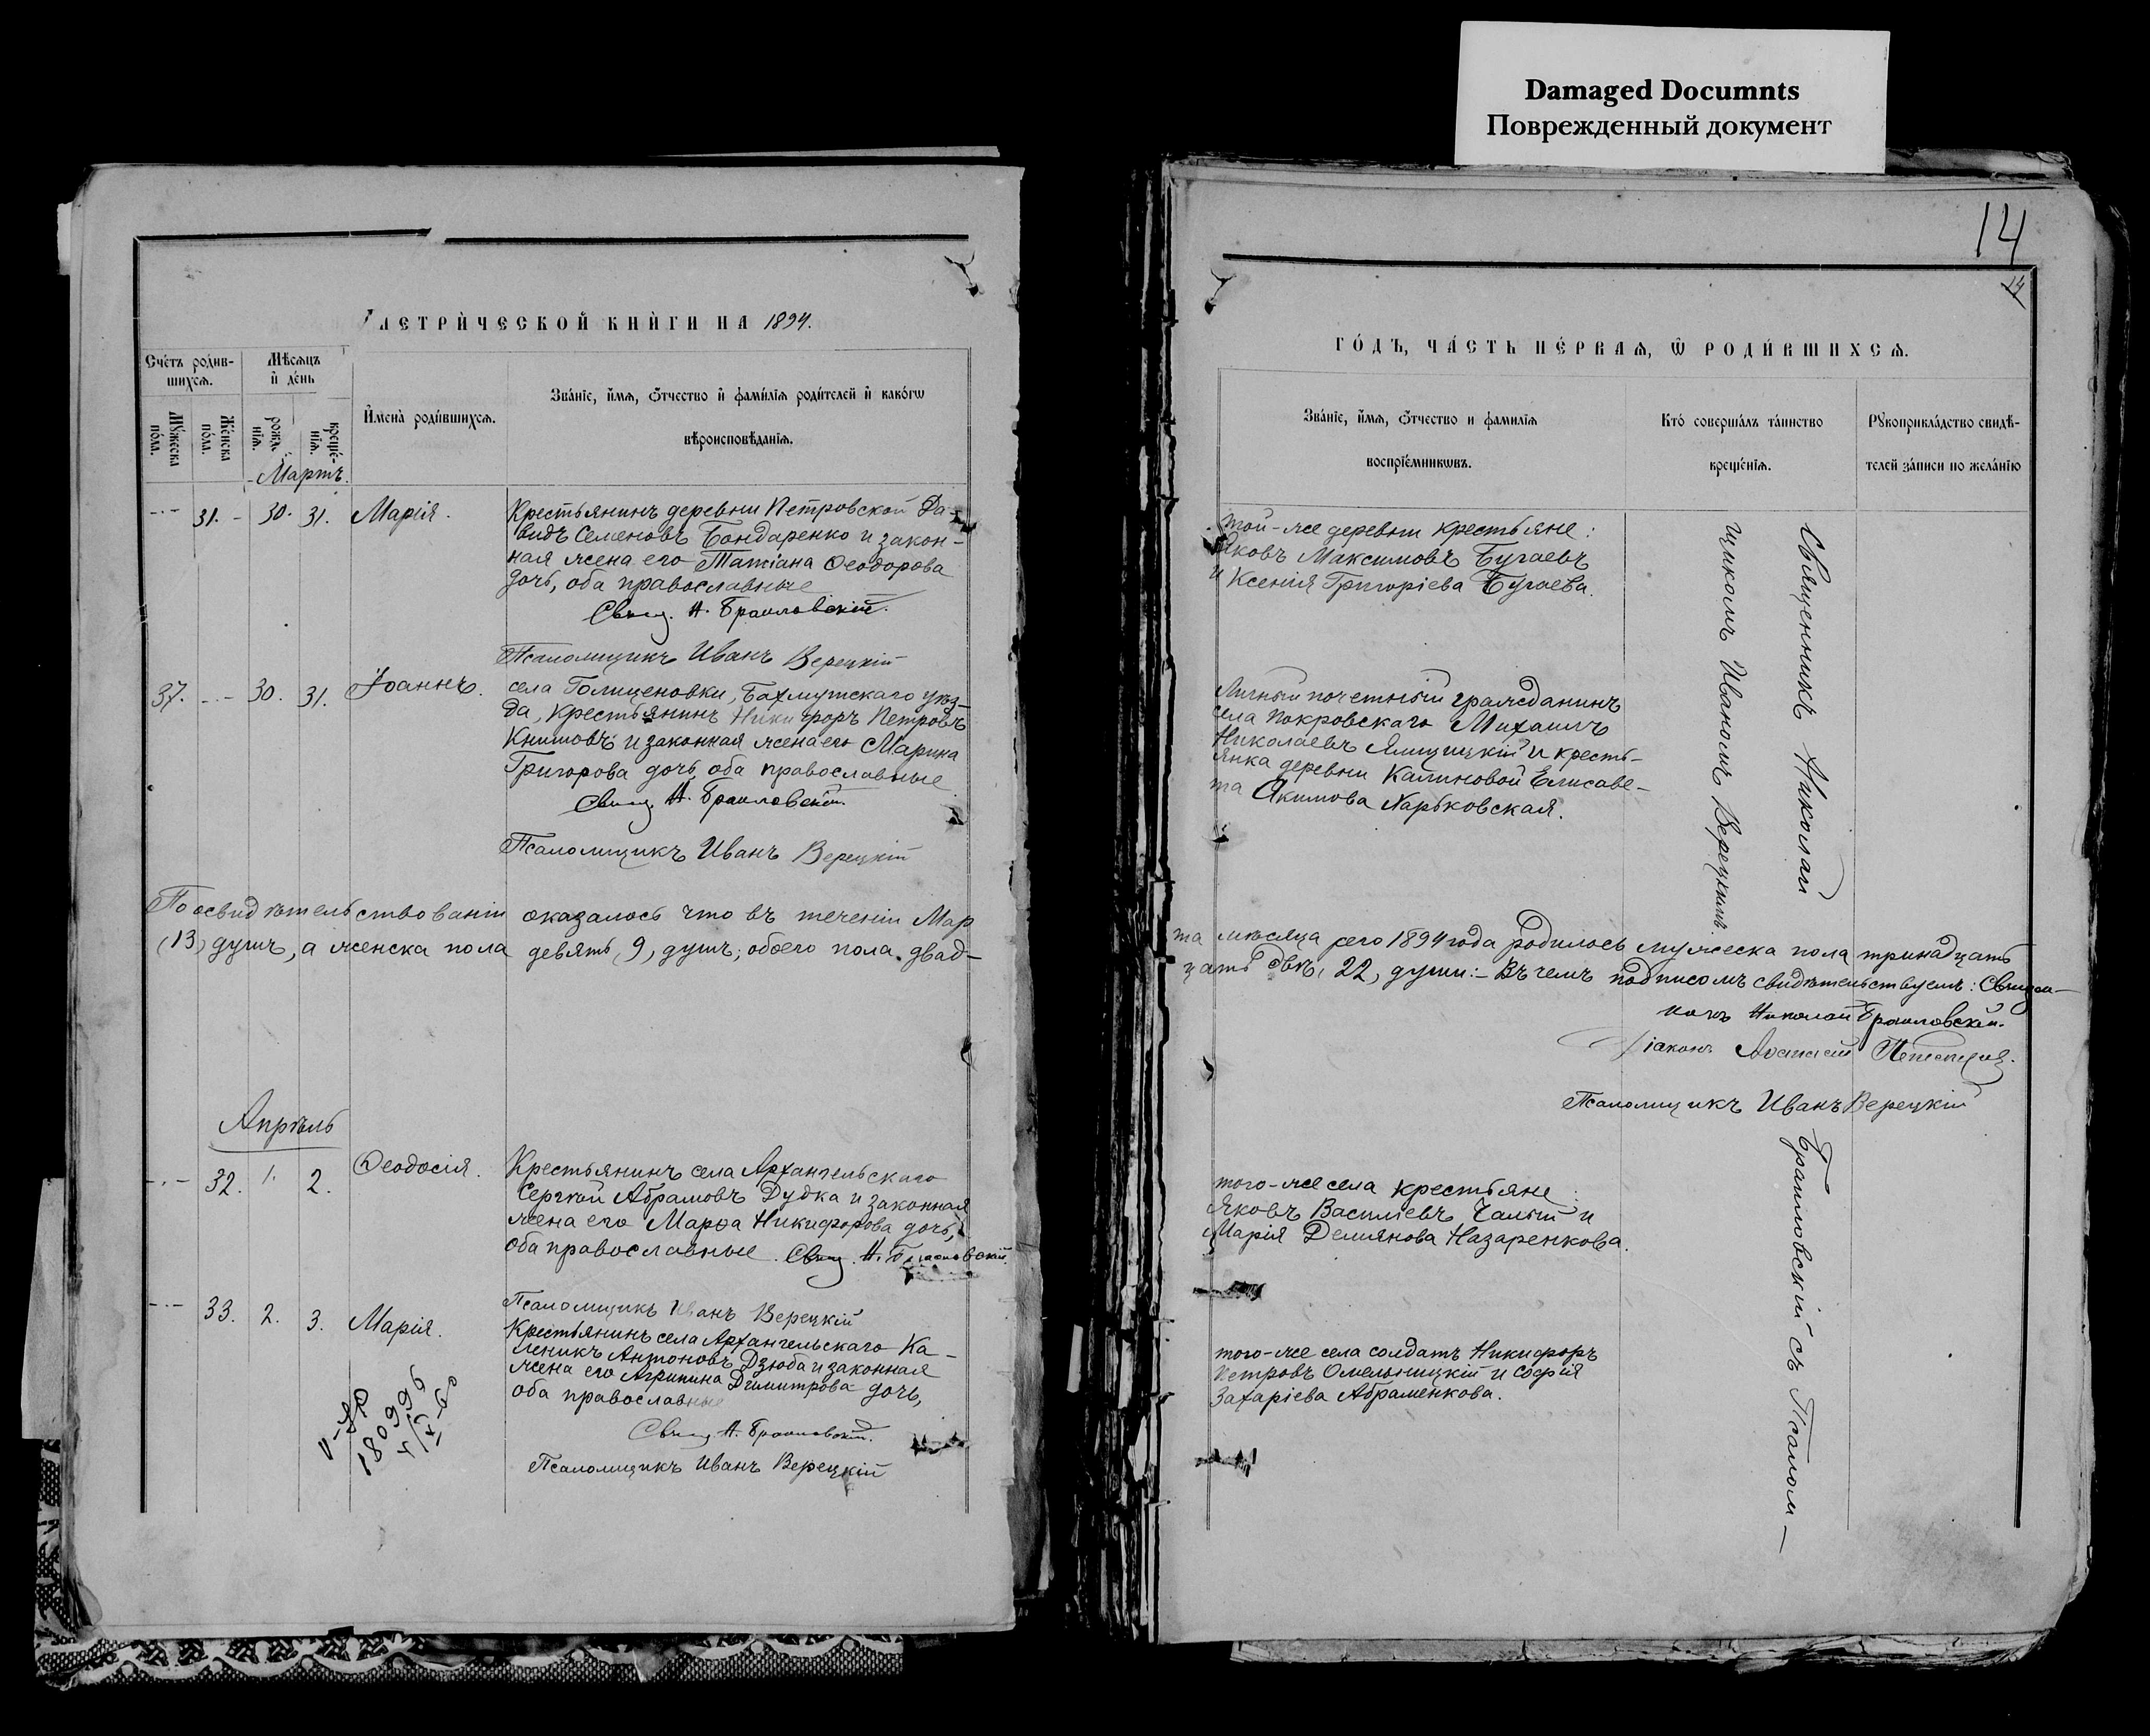 Damaged Documnts
Поврежденный документ
14
14
МЕТРИ́ЧЕСКОЙ КНИ́ГИ НА 1894.
Сче́тъ роди́в-
шихсѧ.
Мѣсѧцъ
и҆ де́нь
Мꙋ́жеска
по́ла.
Же́нска
по́ла.
рожд.
нїѧ.
креще́-
нїѧ.
И҆мена̀ роди́вшихсѧ.
Зва́нїе, и҆́мѧ, ѻ҆́тчество и҆ фами́лїѧ роди́телей и҆ како́гѡ
вѣроисповѣ́данїѧ.
Мартъ.
31. 30. 31. Марія.
Крестьянинъ деревни Петровской Да-
видъ Семеновъ Бондаренко и закон-
ная жена его Татіана Ѳеодорова
дочь, оба православные
Свящ. Н. Браиловскій.
Псаломщикъ Иванъ Верецкій
37. 30. 31. Іоаннъ.
села Голицыновки, Бахмутскаго уѣз-
да, крестьянинъ Никифоръ Петровъ
и законная жена его Марина
Григорова дочь, оба православные
Свящ. Н. Браиловскій.
Псаломщикъ Иванъ Верецкій
По освидѣтельствованіи оказалось что въ теченіи Мар
(13) душъ, а женска пола девять, 9, душъ; обоего пола двад-
Апрѣль
32. 1. 2. Ѳеодосія.
Крестьянинъ села Архангельскаго
Сергѣй Абрамовъ Дудка и законная
жена его Марѳа Никифорова дочь,
оба православные. Свящ. Н. Браиловскій.
Псаломщикъ Иванъ Верецкій
33. 2. 3. Марія.
Крестьянинъ села Архангельскаго Ка-
леникъ Антоновъ Дзюба и законная
жена его Агрипина Димитрова дочь,
оба православные
Свящ. Н. Браиловскій.
Псаломщикъ Иванъ Верецкій
180996
ГО́ДЪ, ЧА́СТЬ ПЕ́РВАѦ, Ѽ РОДИ́ВШИХСѦ.
Зва́нїе, и҆́мѧ, ѻ҆́тчество и фамилїѧ
воспрїе́мникѡвъ.
Кто́ соверша́лъ та́инство
креще́нїѧ.
Рꙋкоприкла́дство свидѣ́-
телей за́писи по жела́нїю
той-же деревни крестьяне:
Яковъ Максимовъ Бугаевъ
и Ксенія Григоріева Бугаева.
Личный почетный гражданинъ
села Покровскаго Михаилъ
Николаевъ и кресть-
янка деревни Калиновой Елисаве-
та Якимова Харьковская.
Священникъ Николай
щикомъ Иваномъ Верецкимъ
та мѣсяца сего 1894 года родилось мужеска пола тринадцать
цать двѣ, 22, души:- Въ чемъ подписомъ свидѣтельствуемъ: Священ-
никъ Николай Браиловскій.
Діаконъ
Псаломщикъ Иванъ Верецкій
того-же села крестьяне:
Яковъ Василіевъ Чалый и
Марія Демянова Назаренкова.
того-же села солдатъ Никифоръ
Петровъ Омельницкій и Софія
Захаріева Абраменкова.
Браиловскій съ Псалом-